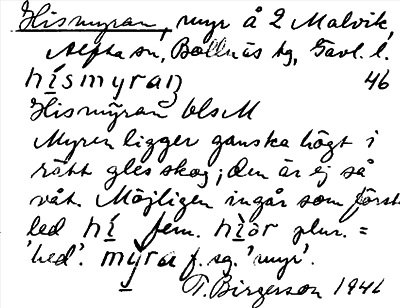 Hismyran, myr å 2 Malvik,
Alfta sn, Bollnäs tg, Gävl. l.
hismyraṇ 46
Hismÿran blsM
Myren ligger ganska högt i
rätt gles skog; den är ej så
våt. Möjligen ingår som först
led hi fem. hiòr plur. =
'hed'. myra f. sg. 'myr'.
T. Birgerson 1946